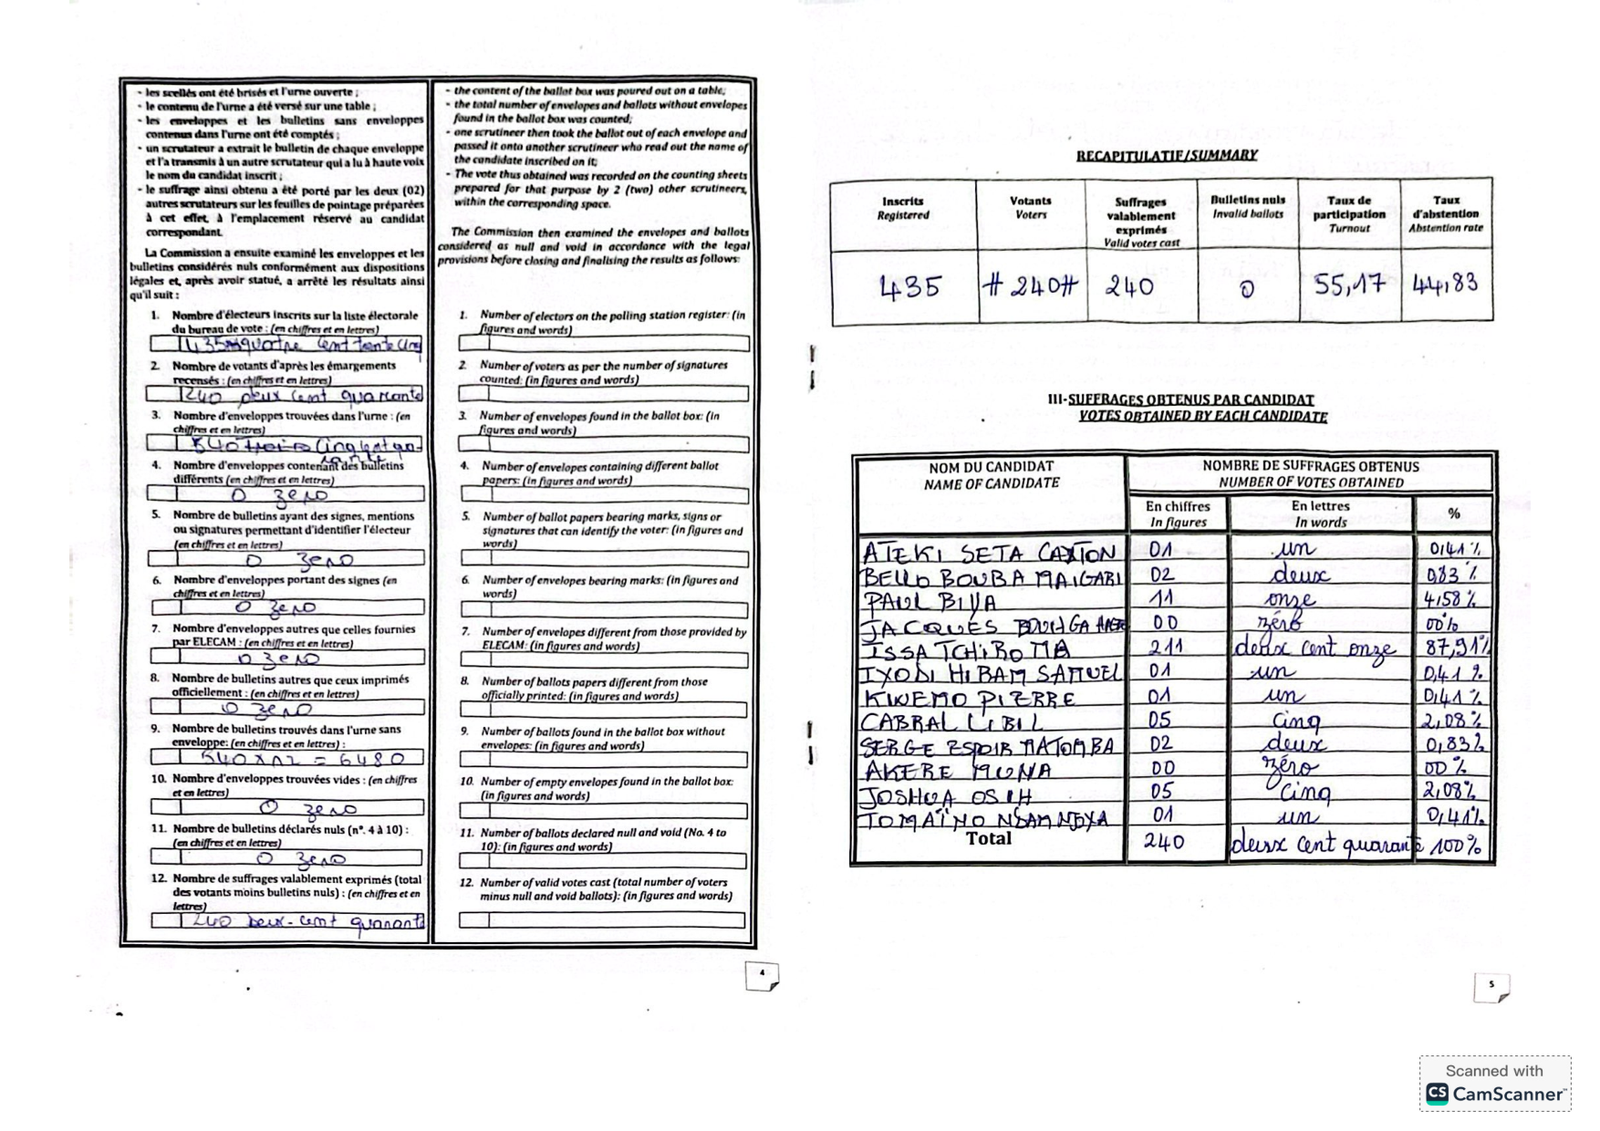 - les scellés ont été brisés et l'urne ouverte ;
- le contenu de l'urne a été versé sur une table ;
- les enveloppes et les bulletins sans enveloppes
contenus dans l'urne ont été comptés ;
- un scrutateur a extrait le bulletin de chaque enveloppe
et l'a transmis à un autre scrutateur qui a lu à haute voix
le nom du candidat inscrit ;
- le suffrage ainsi obtenu a été porté par les deux (02)
autres scrutateurs sur les feuilles de pointage préparées
à cet effet, à l'emplacement réservé au candidat
correspondant.
La Commission a ensuite examiné les enveloppes et les
bulletins considérés nuls conformément aux dispositions
légales et, après avoir statué, a arrêté les résultats ainsi
qu'il suit :
1. Nombre d'électeurs inscrits sur la liste électorale
du bureau de vote : (en chiffres et en lettres)
435 quatre cent trente cinq
2. Nombre de votants d'après les émargements
recensés : (en chiffres et en lettres)
240 deux cent quarante
3. Nombre d'enveloppes trouvées dans l'urne : (en
chiffres et en lettres)
540
4. Nombre d'enveloppes contenant des bulletins
différents (en chiffres et en lettres)
0 zero
5. Nombre de bulletins ayant des signes, mentions
ou signatures permettant d'identifier l'électeur
(en chiffres et en lettres)
0 zero
6. Nombre d'enveloppes portant des signes (en
chiffres et en lettres)
0 zero
7. Nombre d'enveloppes autres que celles fournies
par ELECAM : (en chiffres et en lettres)
0 zero
8. Nombre de bulletins autres que ceux imprimés
officiellement : (en chiffres et en lettres)
0 zero
9. Nombre de bulletins trouvés dans l'urne sans
enveloppe: (en chiffres et en lettres) :
540 x 12 = 6480
10. Nombre d'enveloppes trouvées vides : (en chiffres
et en lettres)
0 zero
11. Nombre de bulletins déclarés nuls (n°. 4 à 10) :
(en chiffres et en lettres)
0 zero
12. Nombre de suffrages valablement exprimés (total
des votants moins bulletins nuls) : (en chiffres et en
lettres)
240 deux-cent quarante
- the content of the ballot box was poured out on a table;
- the total number of envelopes and ballots without envelopes
found in the ballot box was counted;
- one scrutineer then took the ballot out of each envelope and
passed it onto another scrutineer who read out the name of
the candidate inscribed on it;
- The vote thus obtained was recorded on the counting sheets
prepared for that purpose by 2 (two) other scrutineers,
within the corresponding space.
The Commission then examined the envelopes and ballots
considered as null and void in accordance with the legal
provisions before closing and finalising the results as follows:
1. Number of electors on the polling station register: (in
figures and words)
2. Number of voters as per the number of signatures
counted: (in figures and words)
3. Number of envelopes found in the ballot box: (in
figures and words)
4. Number of envelopes containing different ballot
papers: (in figures and words)
5. Number of ballot papers bearing marks, signs or
signatures that can identify the voter: (in figures and
words)
6. Number of envelopes bearing marks: (in figures and
words)
7. Number of envelopes different from those provided by
ELECAM: (in figures and words)
8. Number of ballots papers different from those
officially printed: (in figures and words)
9. Number of ballots found in the ballot box without
envelopes: (in figures and words)
10. Number of empty envelopes found in the ballot box:
(in figures and words)
11. Number of ballots declared null and void (No. 4 to
10): (in figures and words)
12. Number of valid votes cast (total number of voters
minus null and void ballots): (in figures and words)
4
RECAPITULATIF/SUMMARY
Inscrits Registered | Votants Voters | Suffrages valablement exprimés Valid votes cast | Bulletins nuls Invalid ballots | Taux de participation Turnout | Taux d'abstention Abstention rate
435 | #240# | 240 | 0 | 55,17 | 44,83
III-SUFFRAGES OBTENUS PAR CANDIDAT
VOTES OBTAINED BY EACH CANDIDATE
NOM DU CANDIDAT NAME OF CANDIDATE | NOMBRE DE SUFFRAGES OBTENUS NUMBER OF VOTES OBTAINED
En chiffres In figures | En lettres In words | %
ATEKI SETA CAXTON | 01 | un | 0,41 %
BELLO BOUBA MAIGARI | 02 | deux | 0,83 %
PAUL BIYA | 11 | onze | 4,58 %
JACQUES BOUHGA | 00 | zéro | 00 %
ISSA TCHIROMA | 211 | deux cent onze | 87,91 %
IYODI HIRAM SAMUEL | 01 | un | 0,41 %
KWEMO PIERRE | 01 | un | 0,41 %
CABRAL LIBIL | 05 | cinq | 2,08 %
SERGE ESPOIR MATOMBA | 02 | deux | 0,83 %
AKERE MUNA | 00 | zéro | 00 %
JOSHUA OSIH | 05 | cinq | 2,08 %
TOMAÏNO | 01 | un | 0,41 %
Total | 240 | deux cent quarante | 100 %
5
Scanned with
CS CamScanner